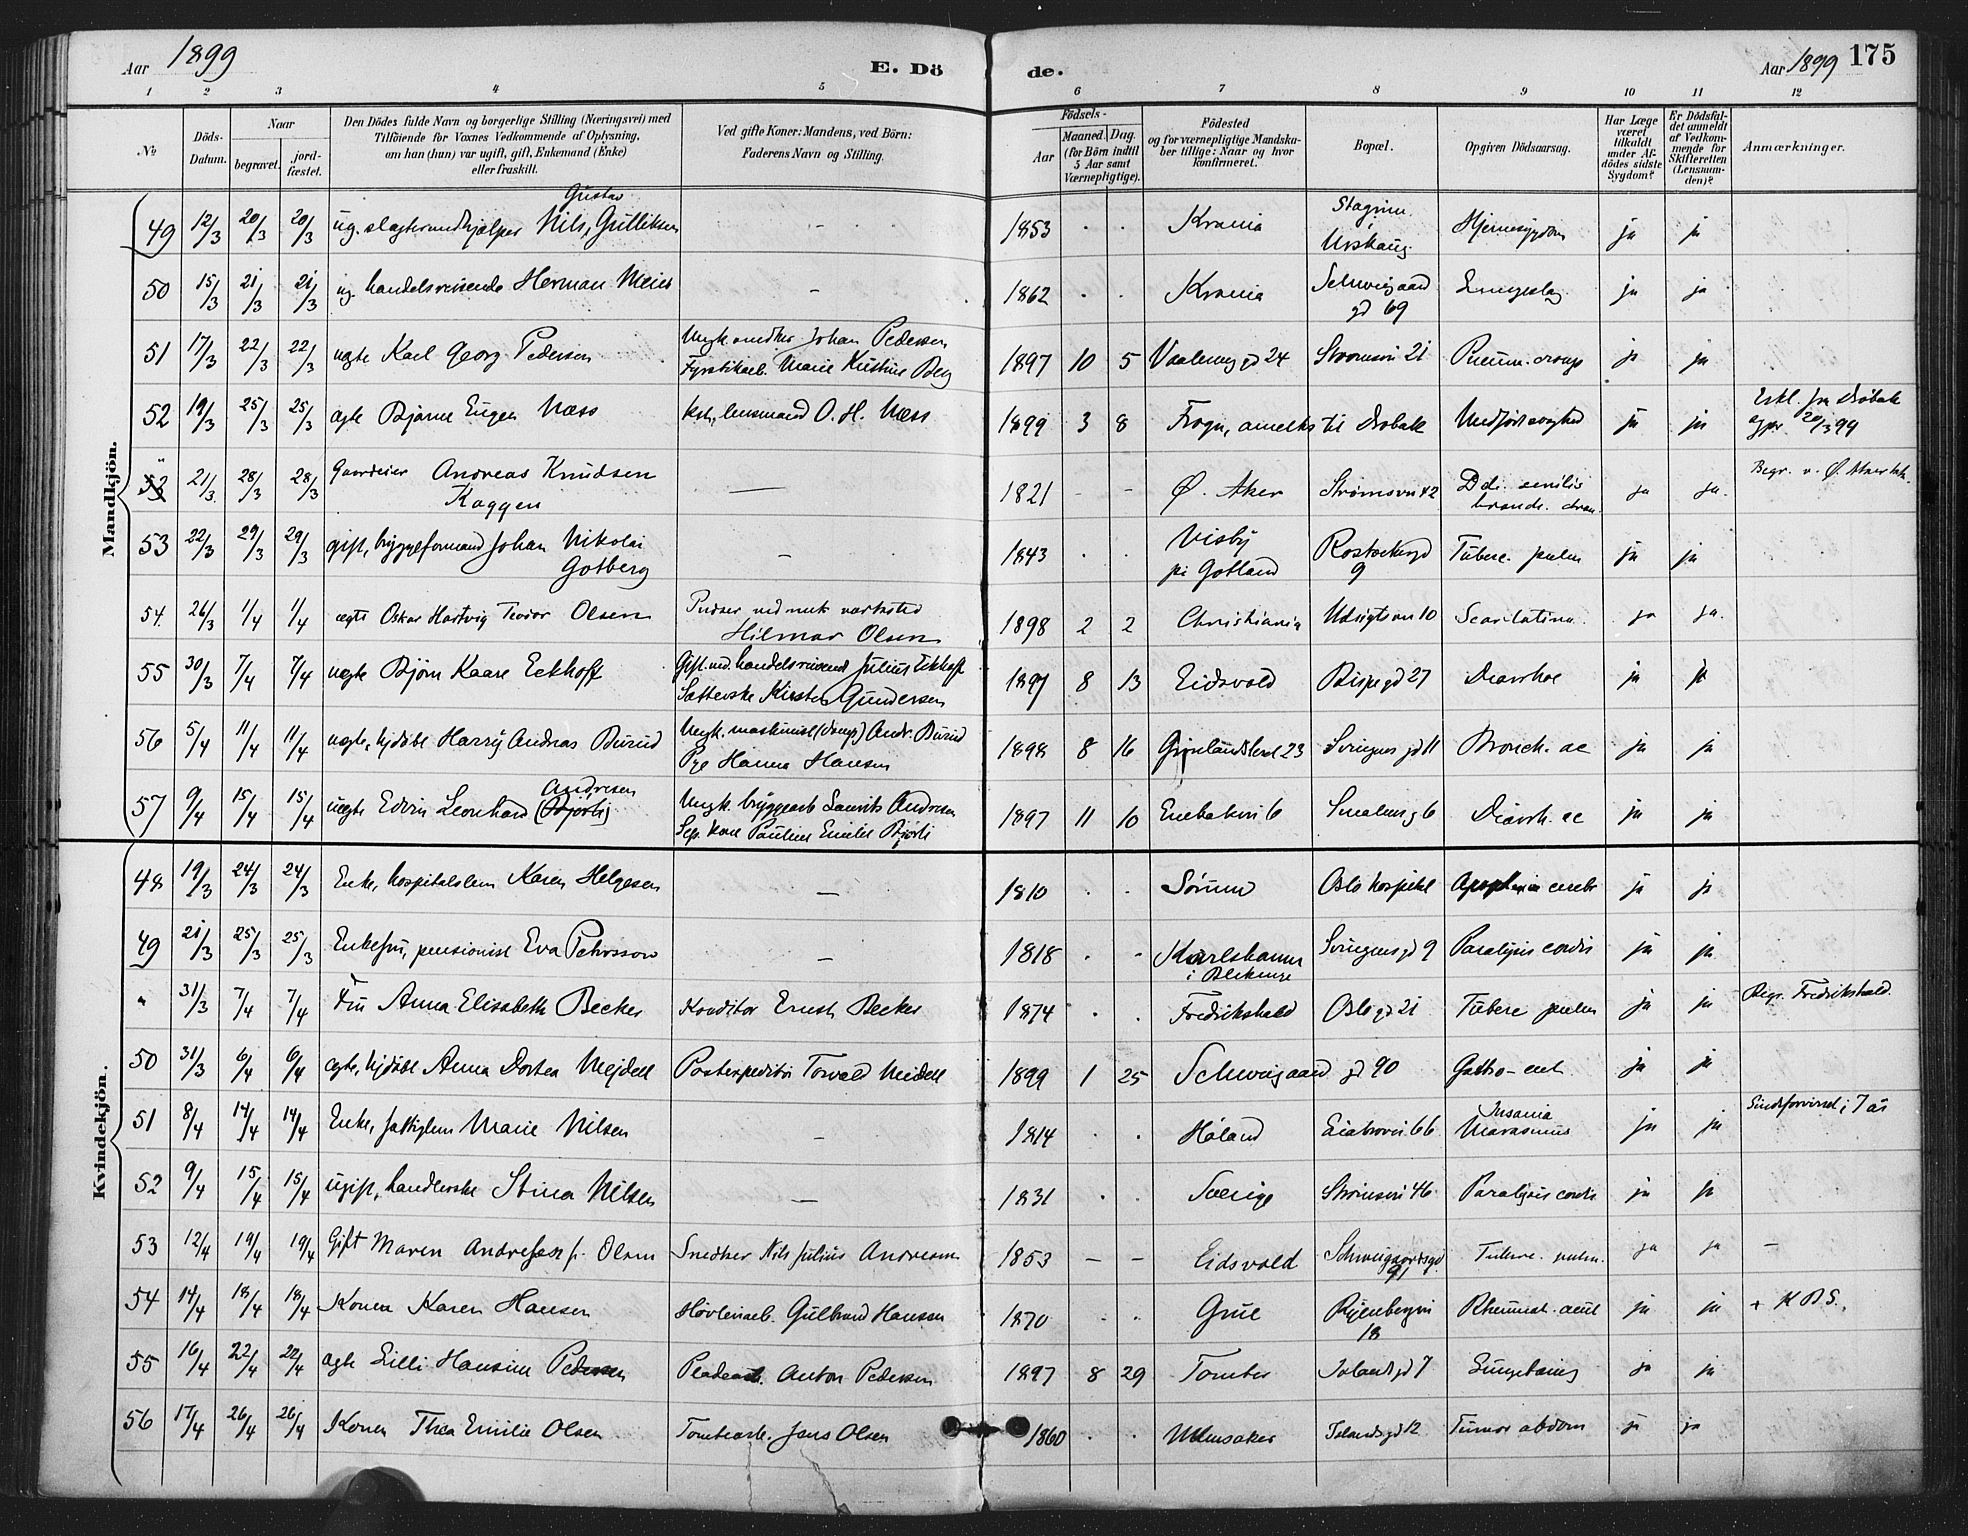 Aar 1899
E. Dö
de.
Aar 1899 175
1 2 3 4 5 6 7 8 9 10 11 12
№
Döds-Datum.
Naar
begravet.
jord-fæstet.
Den Dödes fulde Navn og borgerlige Stilling (Næringsvei) med
Tilföiende for Voxnes Vedkommende af Oplysning,
om han (hun) var ugift, gift, Enkemand (Enke)
eller fraskilt.
Ved gifte Koner: Mandens, ved Börn:
Faderens Navn og Stilling.
Födsels-
Aar
Maaned. Dag.
(for Börn indtil
5 Aar samt
Værnepligtige).
Födested
og for værnepligtige Mandskaber tillige: Naar og hvor
konfirmeret.
Bopæl.
Opgiven Dödsaarsag.
Har Læge
været
tilkaldt
under Afdödes sidste
Sygdom?
Er Dödsfaldet anmeldt
af Vedkommende for
Skifteretten
(Lensmanden)?
Anmærkninger.
Mandkjön.
Gustav
49 12/3 20/3 20/3 ug. slagtersvendhjælper Nils Gulliksen - 1853 . . Krania Urskaug ja ja
50 15/3 21/3 21/3 ug. handelsreisende Herman Meier - 1862 . . Krania Schweigaard gd 69 ja ja
51 17/3 22/3 22/3 uegte Karl Georg Pedersen Ungk. snedker Johan Pedersen
Fyrstikarb. Marie Kristine Berg 1897 10 5 Vaalerenggd 24 Stromsvn 21 Pneum. croup ja ja
52 19/3 25/3 25/3 ægte Bjarne Eugen Næss lensmand O. H. Næss 1899 3 8 Frogn, til Drobak Medfödt svaghed ja ja Drøbak 20/3 99
53 21/3 28/3 28/3 Gaardeier Andreas Knudsen
Kaggen — 1821 - - Ø. Aker Strømsvn 42 senilis ja ja. Begr. v. Ø. Aker
53 22/3 29/3 29/3 gift, bryggeformand Johan Nikolai
Gotberg - 1843 . . Visby
på Gotland Rostockergd
9 Tuberc. pulm ja ja
54. 26/3 1/4 1/4 ægte Oskar Hartvig Teodor Olsen Pudser ved mek værksted
Hilmar Olsen 1898 2 2 Christiania Udsigtsvn 10 Scarlatina ja ja.
55 30/3 7/4 7/4 uegte Bjørn Kaare Eckhoff Gift. handelsreisend Julius Eckhoff
Kirsten Gundersen 1897 8 13 Eidsvold Bispegd 27 Diarrhoe ja ja
56 5/4 11/4 11/4 uegte, hjdöbt Harry Andreas Burud Ungk. maskinist Andr. Burud
Pge Hanna Hansen 1898 8 16 Grönlandsleret 23 Sveingens gd 11 Bronch. ac ja ja
57 9/4 15/4 15/4 uegte Edvin Leonhard (Bjorli) Andresen Ungk. bryggearb Laurits Andresen
Sep. kone Pauline Emilie Bjorli 1897 11 10 Enebakvn 6 Smalensg 6 Diarrh. ac ja ja
Kvindekjön.
48 19/3 24/3 24/3 Enke, hospitalslem Karen Helgesen - 1810 . . Sörum Oslo hospital Apoplexia cerebr ja ja
49 21/3 25/3 25/3 Enkefru, pensionist Eva Pehrsson - 1818 . - Karlshamn
i Blekinge Sveingens gd 9 Paralysis cordis ja ja
" 31/3 7/4 7/4 Fru Anna Elisabeth Becker Konditor Ernst Becker 1874 . . Fredrikshald Oslogd 21 Tuberc pulm ja ja Begr. Fredrikshald.
50 31/3 6/4 6/4 ægte, hjdöbt Anna Dortea Mejdell Postexpeditör Torvald Meidell 1899 1 25 Schweigaard gd 90 Gastro-ent. ja ja
51 8/4 14/4 14/4 Enke, fattiglem Marie Nilsen - 1814 . . Höland 66 Insania
Marasmus ja ja Sindsforvirret i 7 år
52 9/4 15/4 15/4 ugift, handlerske Stina Nilsen — 1831 . . Sverige Strömsvn 46 Paralysis cordis ja ja
53 12/4 19/4 19/4 Gift Maren Andressen f. Olsen Snedker Nils Julius Andresen 1853 - - Eidsvold Schweigaardsgd.
91 Tuberc. pulm. ja ja -
54 14/4 18/4 18/4 Konen Karen Hansen Hövleriarb. Gulbrand Hanssen 1870 . . Grue Ryenbergvn
18 Rheumat. acut ja ja + K B S.
55 16/4 22/4 22/4 ægte Lilli Hansine Pedersen Pladearb. Anton Pedersen 1897 8 29 Tomter Jslandsgd 7 Lungebetændelse ja ja
56 17/4 26/4 26/4 Konen Thea Emilie Olsen Tomtearb. Jens Olsen 1860 . . Ullensaker Jslandsgd 12 Tumor abdom ja ja